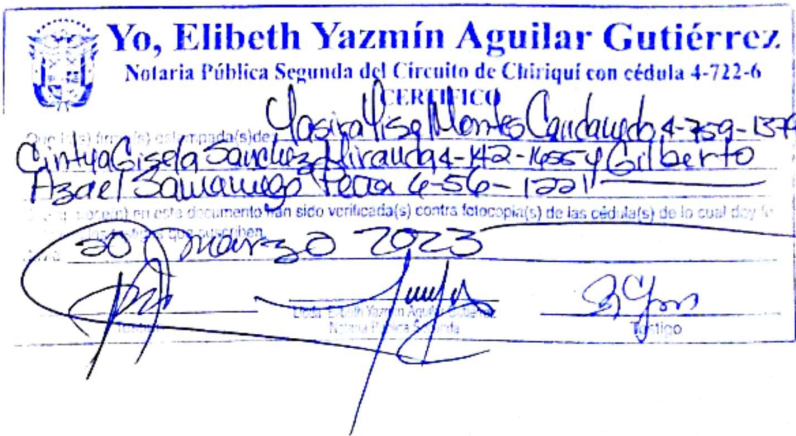 Yo, Elibeth Yazmín Aguilar Gutiérrez
Notaria Pública Segunda del Circuito de Chiriquí con cédula 4-722-6
CERTIFICO
Que la(s) firma(s) estampada(s) de Yasira Yisel Montes Candanedo 4-759-1579
Cintya Gisela Sanchez Miranda 4-142-1655 y Gilberto
Azael Samaniego 6-56-1221
en este documento han sido verificada(s) contra fotocopia(s) de las cédula(s) de lo cual doy fe
que suscriben
20 marzo 2023
Licda. Elibeth Yazmín Aguilar Gutiérrez
Notaria Pública Segunda
Testigo